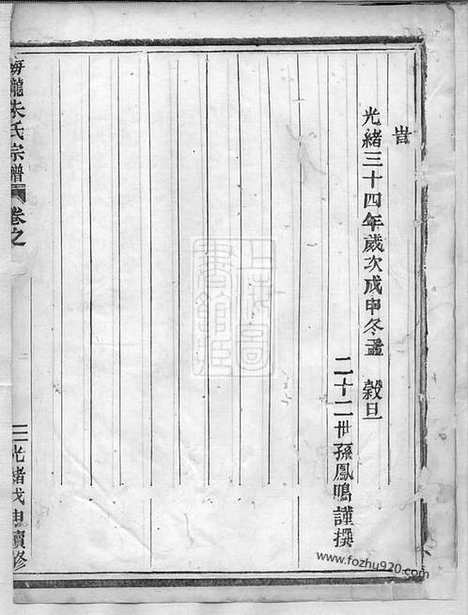 旹
光緒三十四年歲次戊申冬孟 穀旦
二十二世孫鳳鳴謹撰
朱氏宗譜 卷之 三 光緒戊申續修
www.fozhu920.com